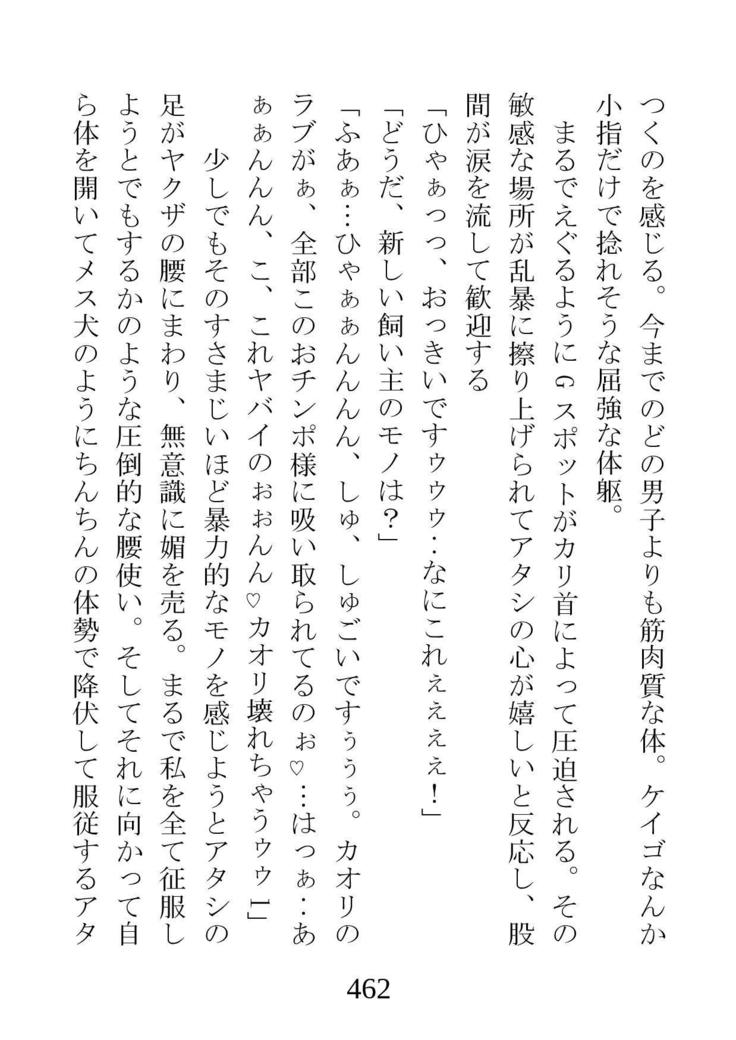 つくのを感じる。今までのどの男子よりも筋肉質な体。ケイゴなんか
小指だけで捻れそうな屈強な体躯。
まるでえぐるようにGスポットがカリ首によって圧迫される。その
敏感な場所が乱暴に擦り上げられてアタシの心が嬉しいと反応し、股
間が涙を流して歓迎する
「ひゃぁっっ、おっきいですゥゥゥ‥なにこれぇぇぇぇ！」
「どうだ、新しい飼い主のモノは？」
「ふあぁ…ひゃぁぁんんんん、しゅ、しゅごいですぅぅぅ。カオリの
ラブがぁ、全部このおチンポ様に吸い取られてるのぉ♡…はっぁ‥あ
ぁぁんんん、こ、これヤバイのぉぉんん♡カオリ壊れちゃうゥゥ1」
少しでもそのすさまじいほど暴力的なモノを感じようとアタシの
足がヤクザの腰にまわり、無意識に媚を売る。まるで私を全て征服し
ようとでもするかのような圧倒的な腰使い。そしてそれに向かって自
ら体を開いてメス犬のようにちんちんの体勢で降伏して服従するアタ
462